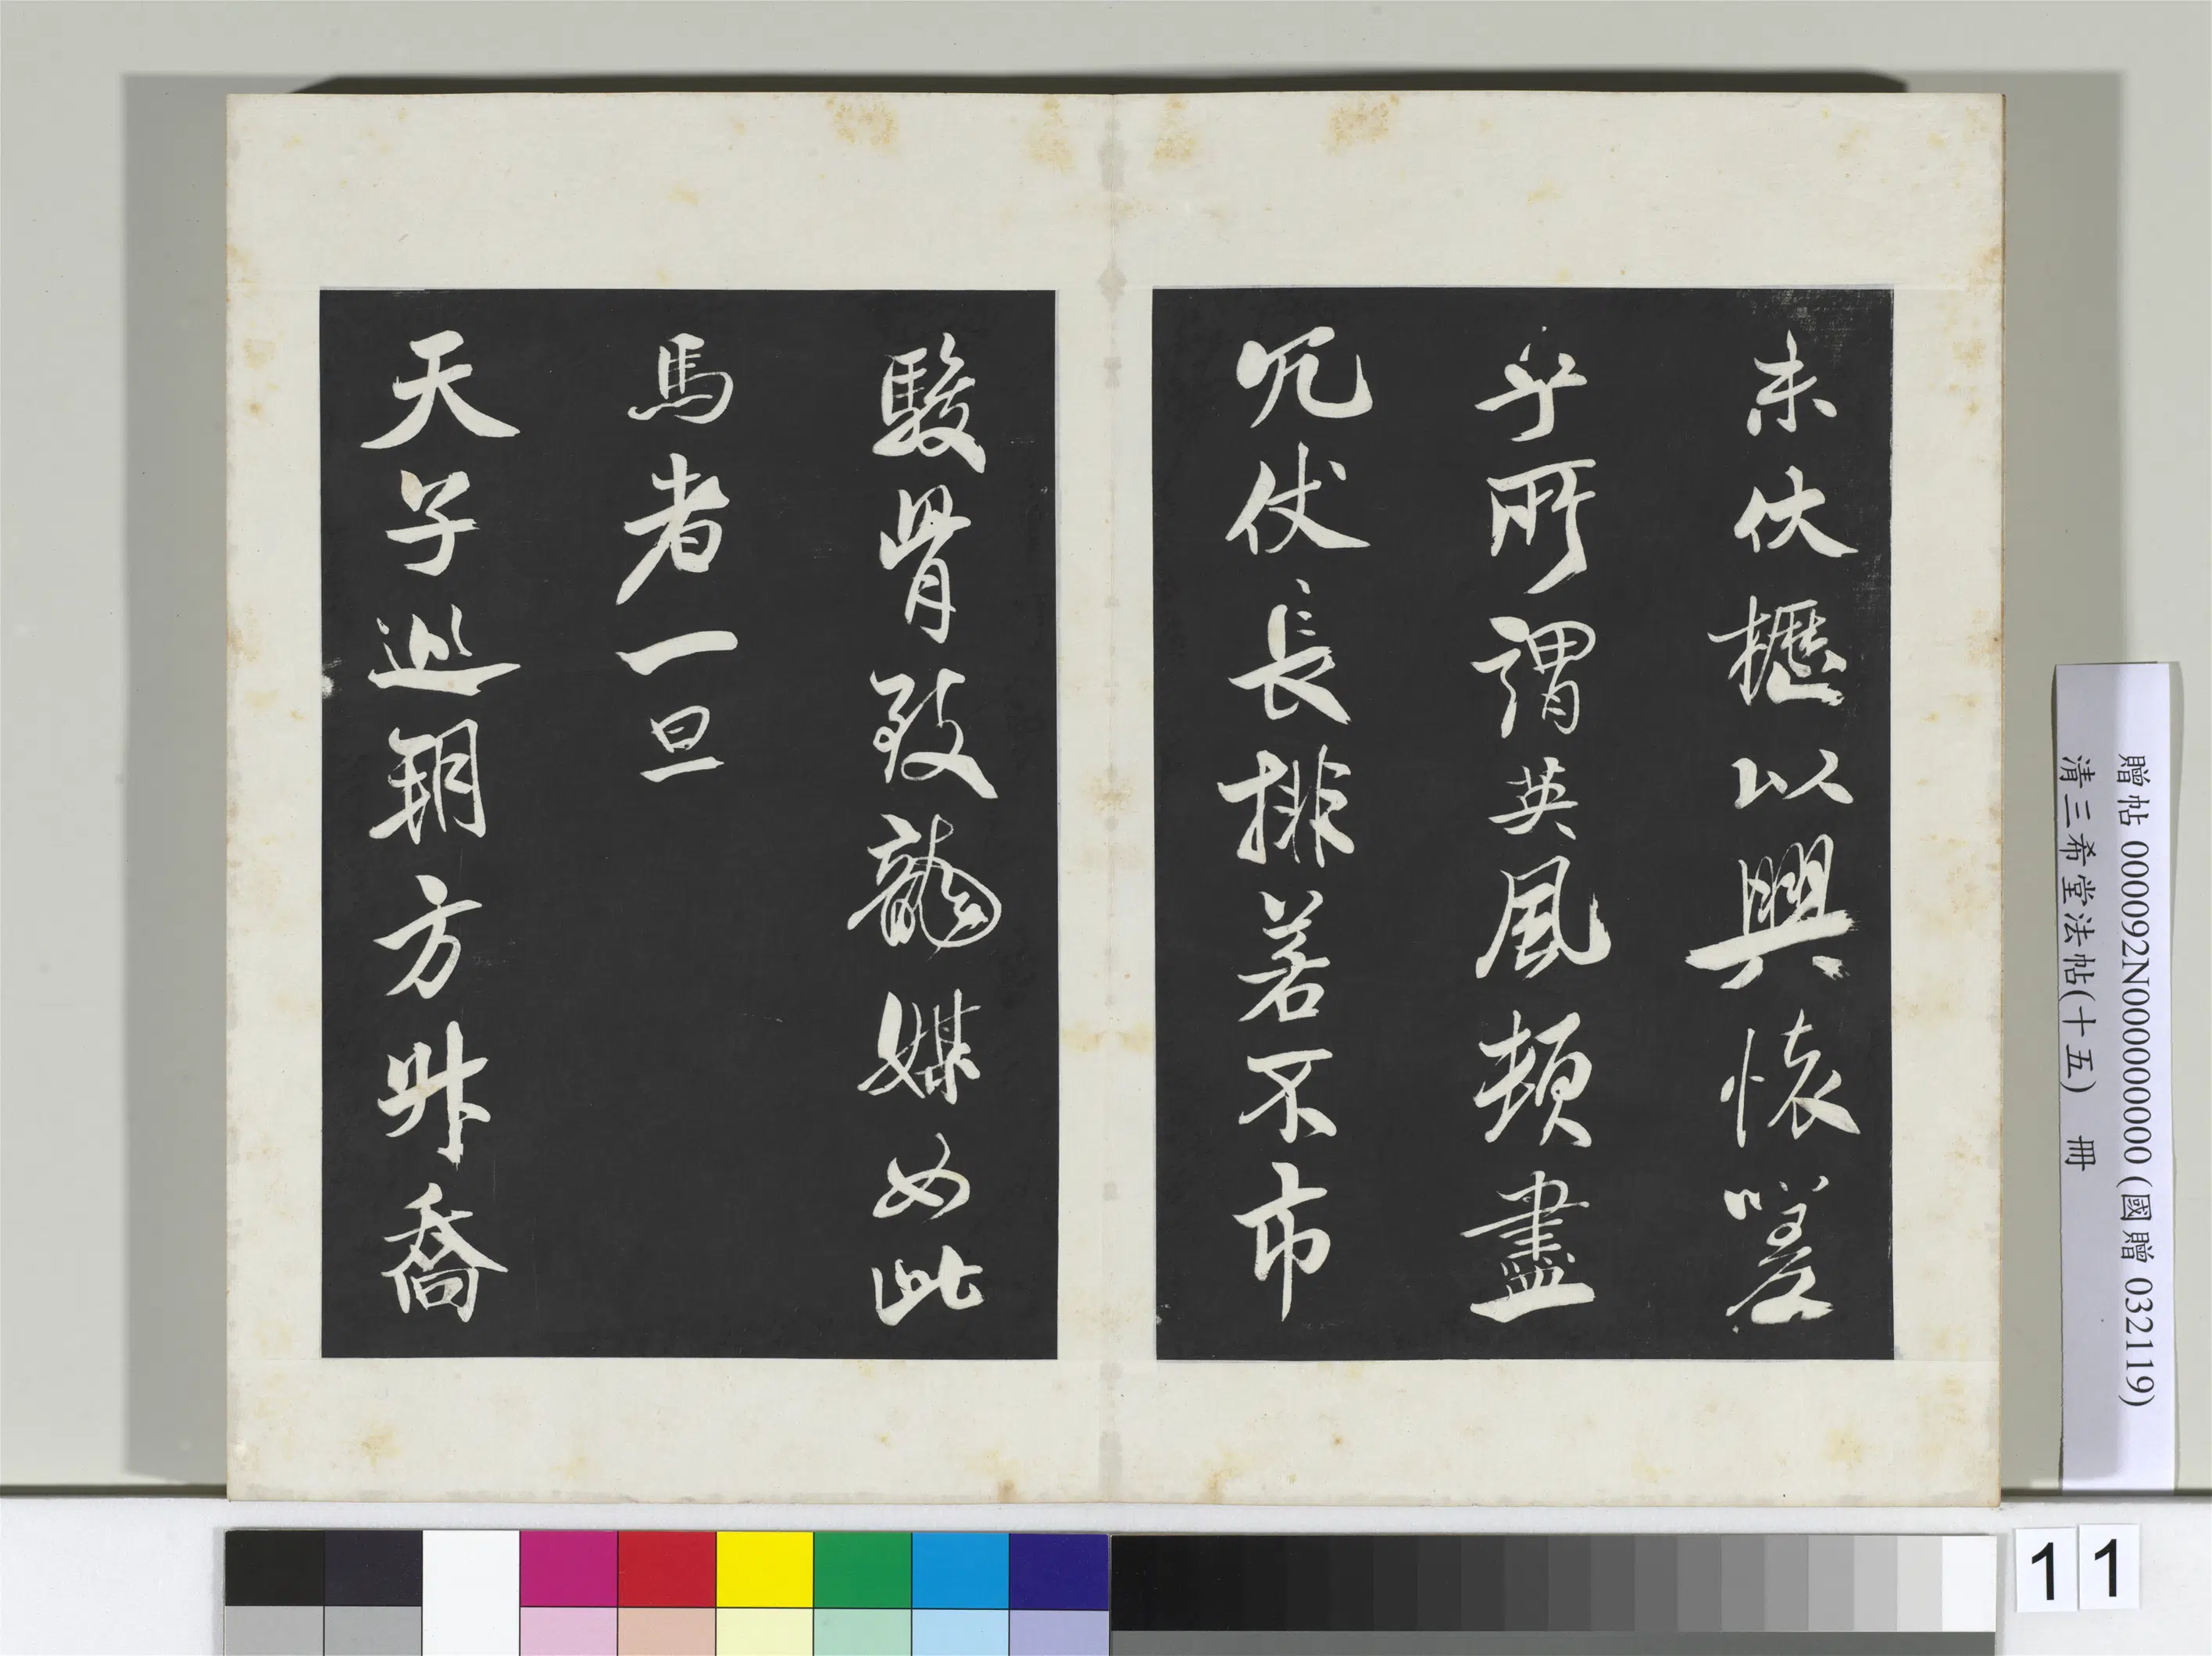 未伏櫪以興懷嗟
乎所謂英風頓盡
冗仗長排若不市
駿骨致龍媒如此
馬者一旦
天子巡朔方升喬
贈帖 000092N000000000 (國贈 032119)
清三希堂法帖(十五) 冊
11